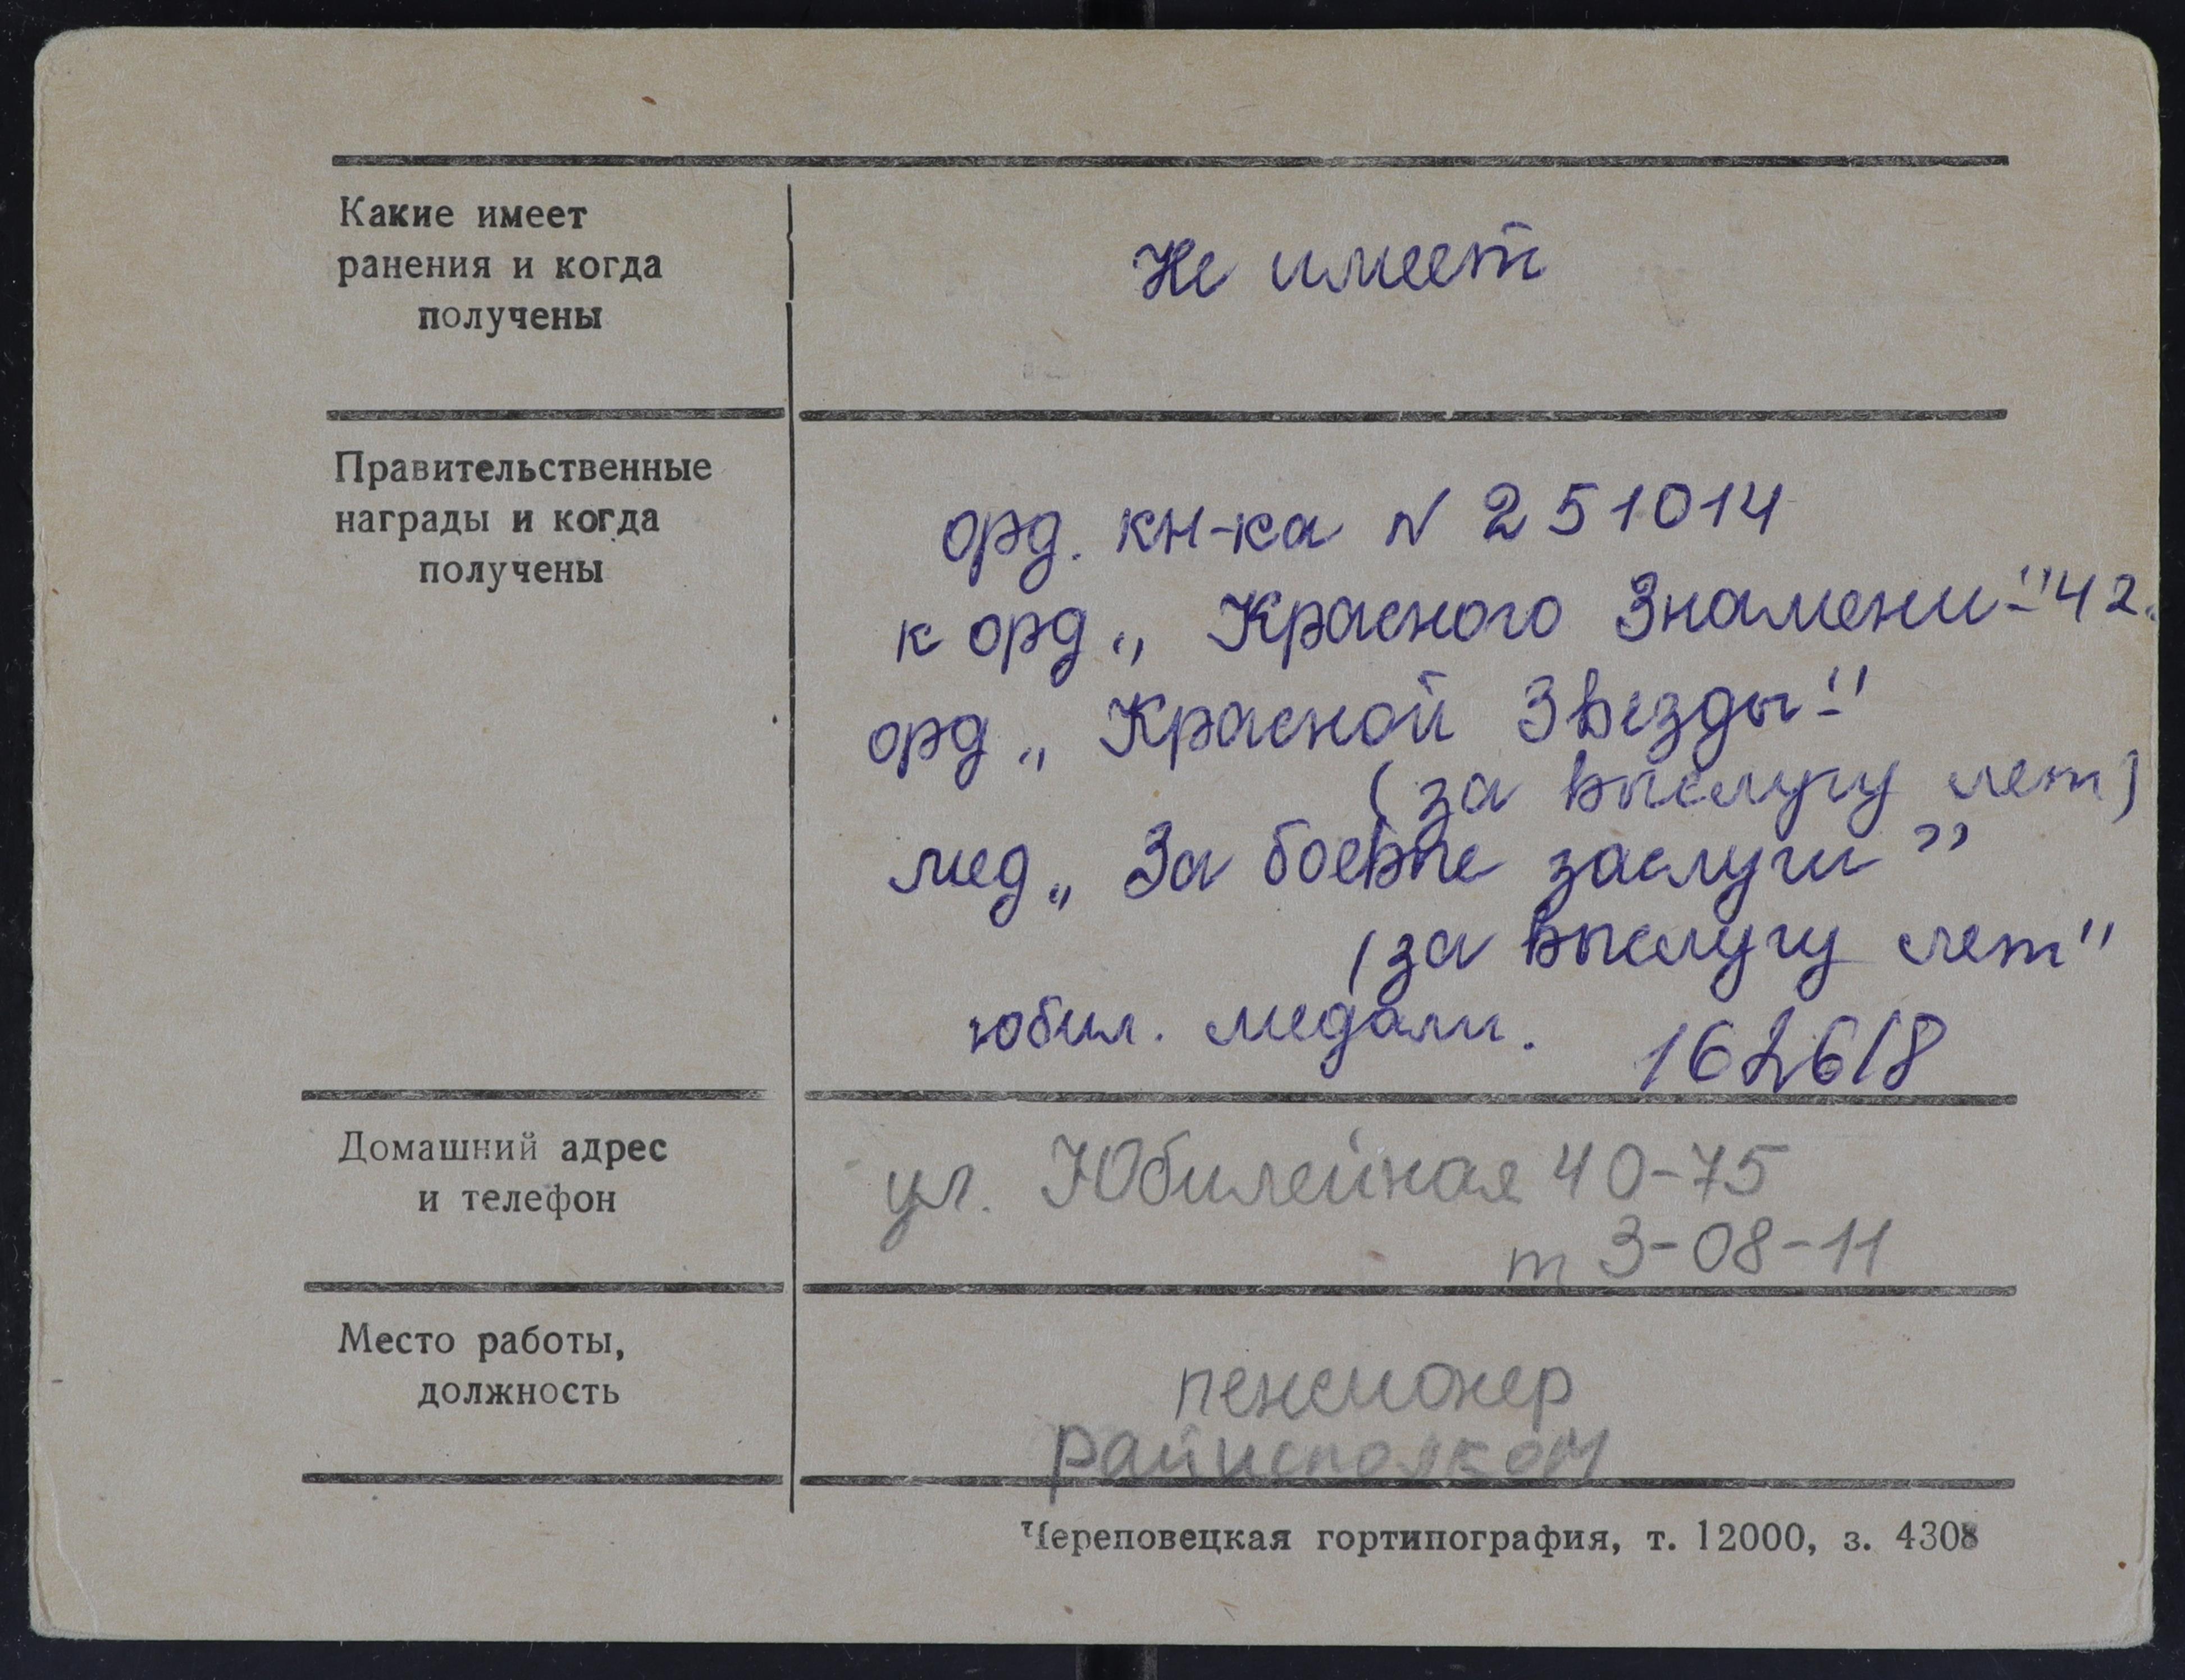 Какие имеет
ранения и когда
получены
Не имеет
Правительственные
награды и когда
получены
орд. кн-ка N 251014
к орд „ Красного Знамени"-42.
орд „ Красной Звезды"
(за выслугу лет)
мед „ За боевые заслуги"
(за выслугу лет"
юбил. медали. 162618
Домашний адрес
и телефон
ул. Юбилейная 40-75
т 3-08-11
Место работы,
должность
пенсионер
райисполком
Череповецкая гортипография, т. 12000, з. 4308